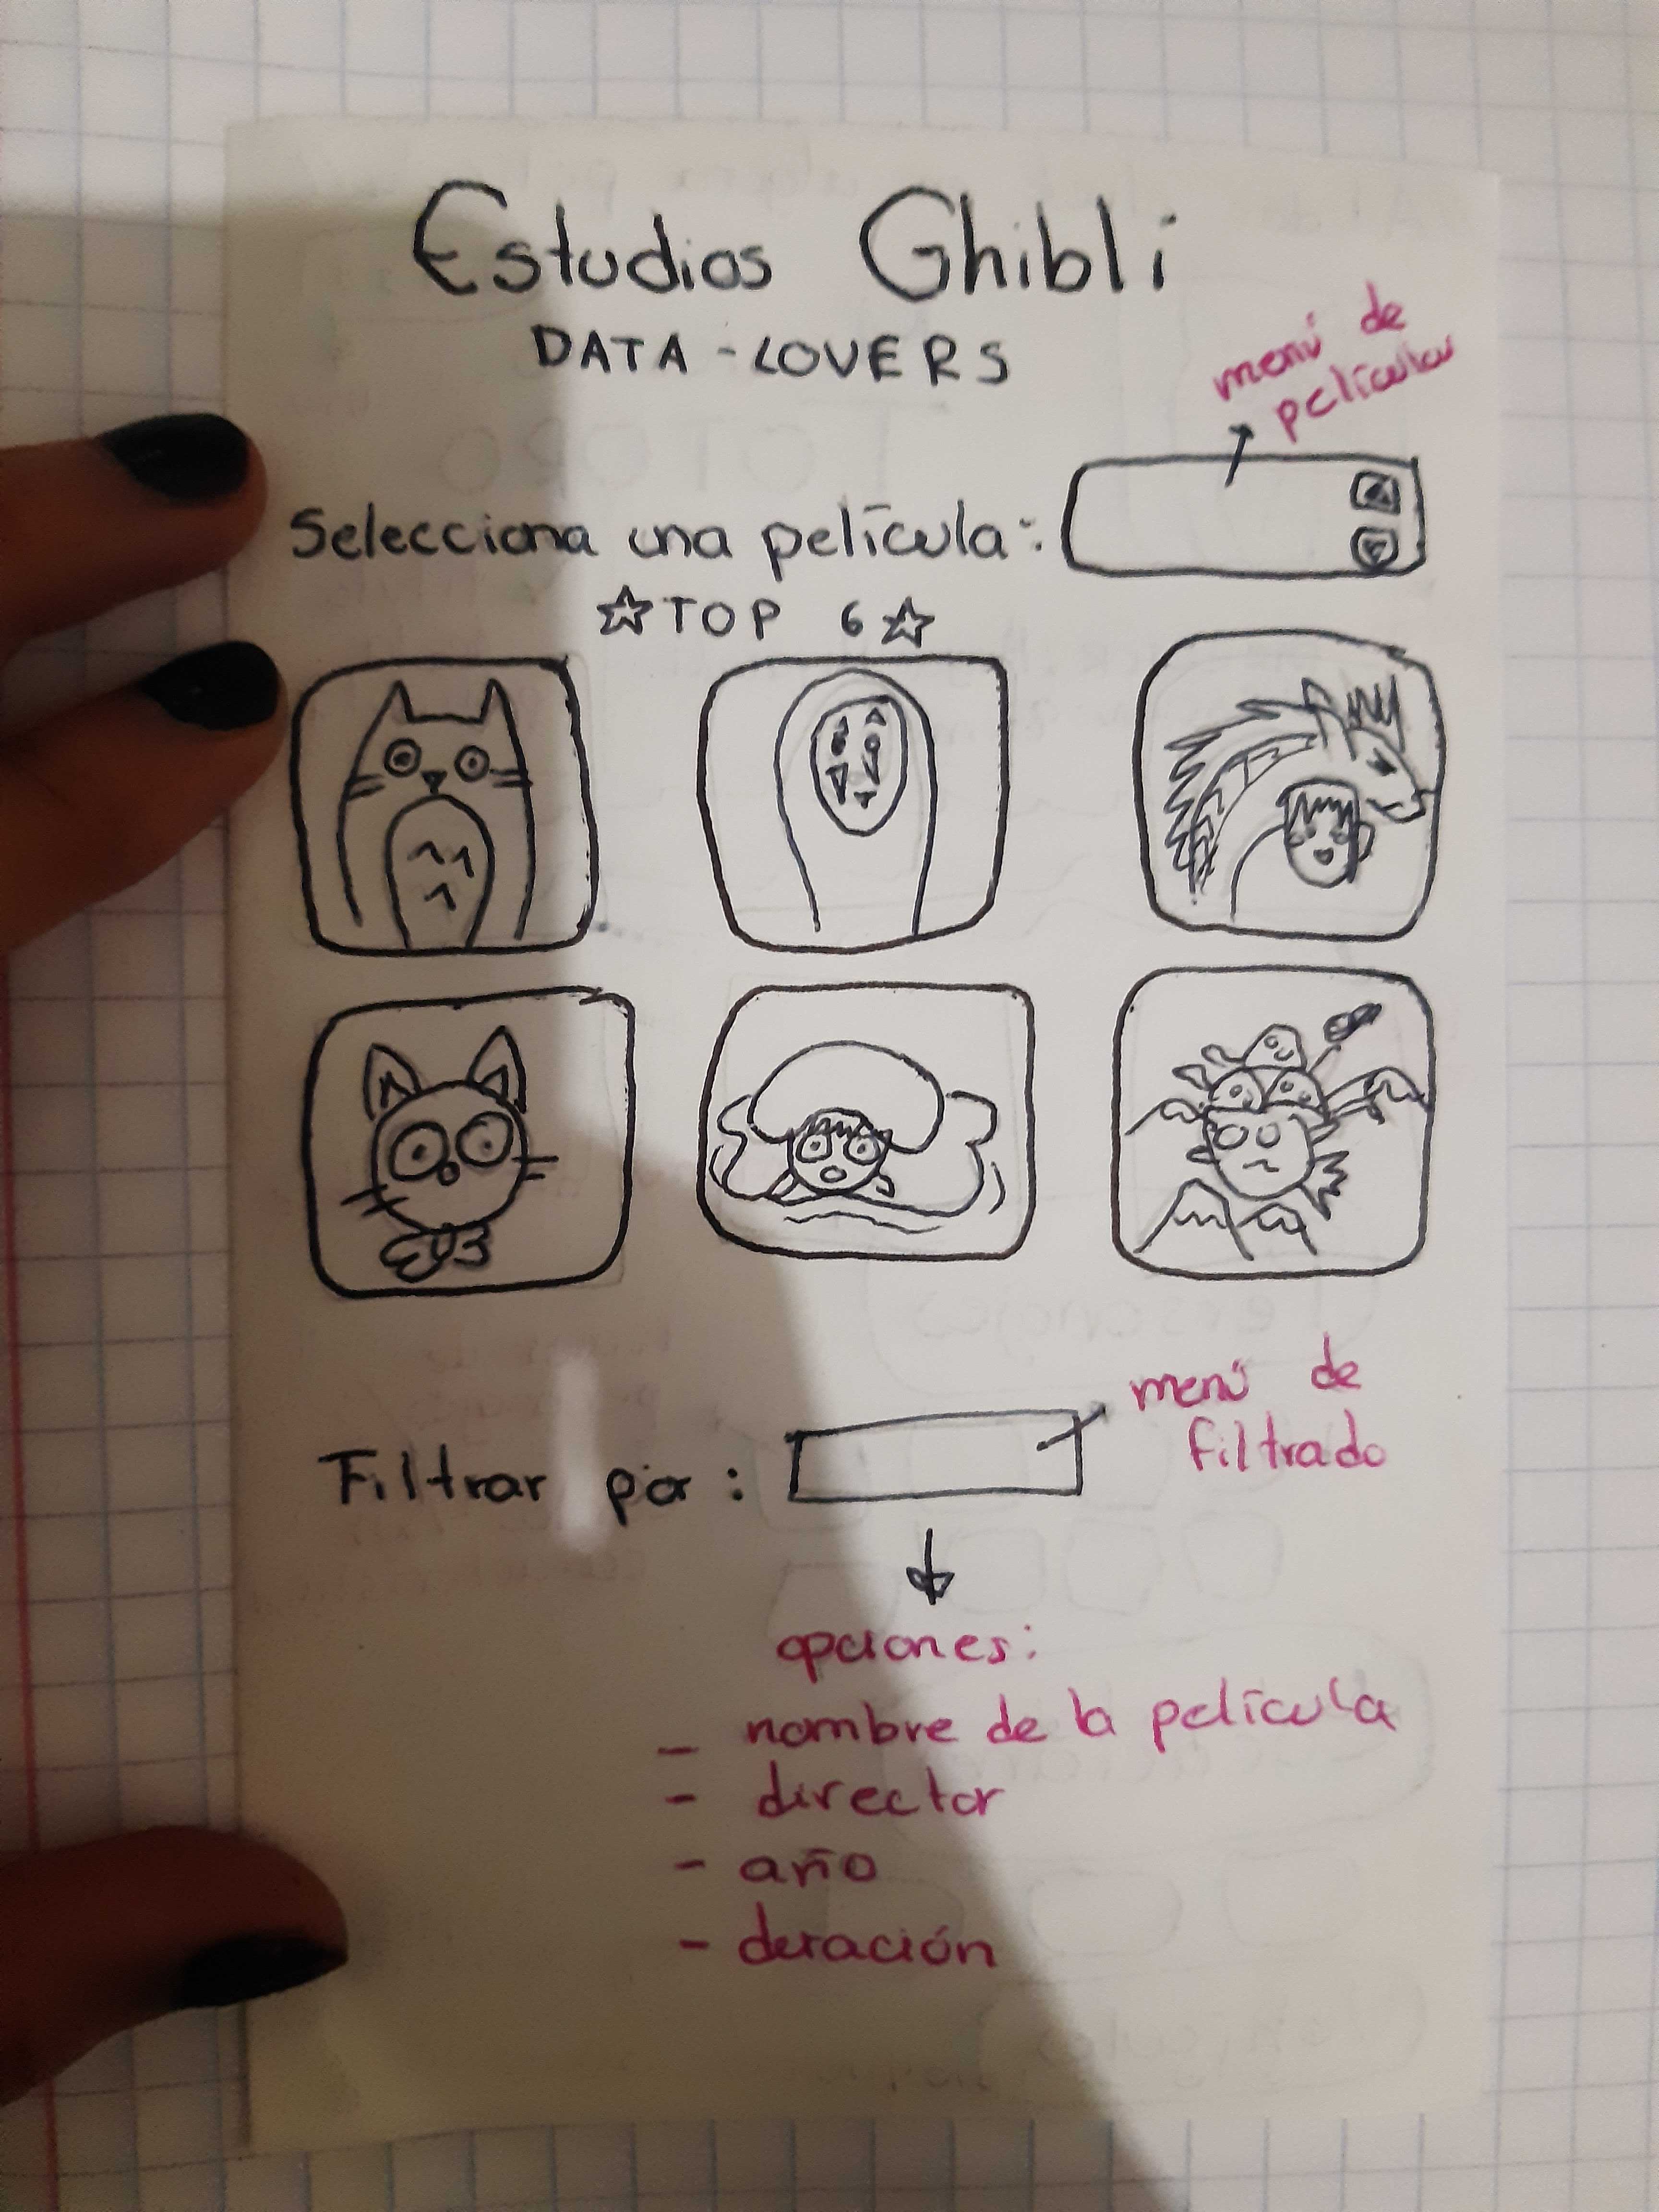 Estudios Ghibli
DATA-LOVERS
menú de
películas
Selecciona una película:
☆TOP 6☆
Filtrar por:
menú de
filtrado
opciones:
- nombre de la película
- director
- año
- duración